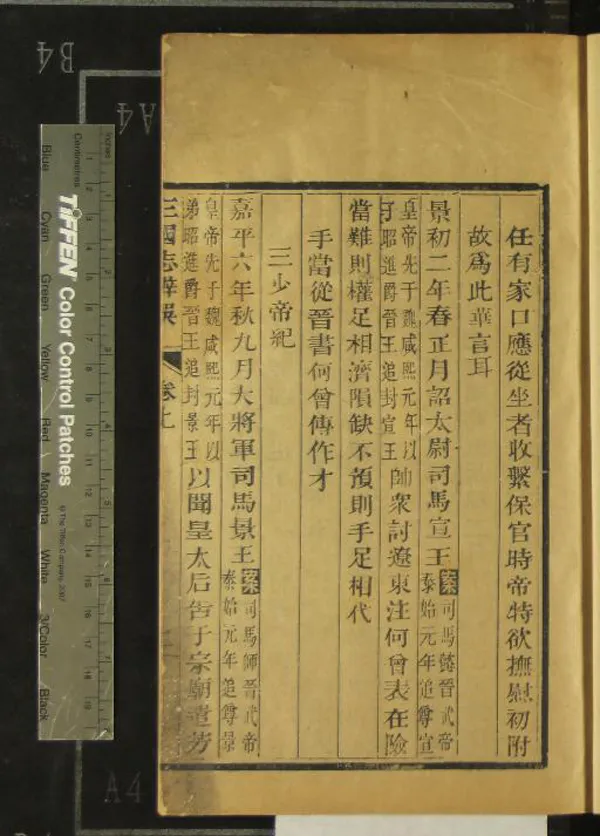 任有家口應從坐者收繫保官時帝特欲撫慰初附
故爲此華言耳
景初二年春正月詔太尉司馬宣王案司馬懿晉武帝泰始元年追尊宣
皇帝先于魏咸熙元年以子昭進爵晉王追封宣王帥衆討遼東注何曾表在險
當難則權足相濟隕缺不預則手足相代
手當從晉書何曾傳作才
三少帝紀
嘉平六年秋九月大將軍司馬景王案司馬師晉武帝泰始元年追尊景
皇帝先于魏咸熙元年以弟昭進爵晉王追封景王以聞皇太后告于宗廟遣芳
三國志辨誤
卷上
B4
A4
A4
Inches
Centimetres
TIFFEN Color Control Patches
© The Tiffen Company, 2007
Blue
Cyan
Green
Yellow
Red
Magenta
White
3/Color
Black